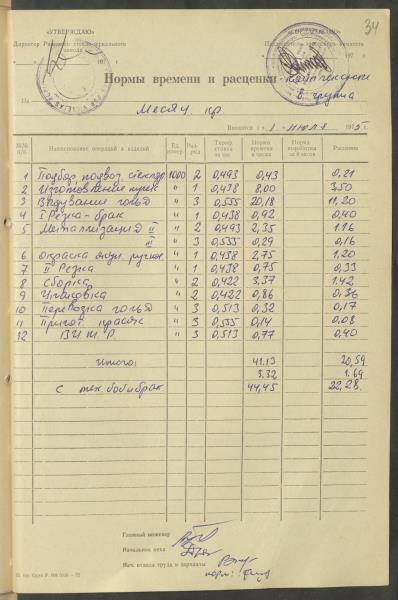 34
«УТВЕРЖДАЮ»
Директор
завода
197
«СОГЛАСОВАНО»
197 г.
Нормы времени и расценки
в. группа
На Месяц пр.
Вводится с « 1 » июля 1975 г.
№№ п/п Наименование операций и изделий Ед. измер. Раз-ряд Тариф ставка за час Норма времени в часах Норма выработки за 8 часов Расценки
1 Подбор подвоз стеклодр 1000 2 0,493 0,43 0,21
2 Изготовление пулек " 1 0,438 8,00 3,50
3 Выдувание гольд " 3 0,555 20,18 11,20
4 I Резка-брак " 1 0,438 0,92 0,40
5 Металлизация II " 2 0,493 2,35 1.16
III " 3 0,535 0,29 0,16
6 Окраска ручная " 1 0,438 2,75 1,20
7 II Резка " 1 0,438 0,75 0,33
8 Сборка " 2 0,422 3,37 1.42
9 Упаковка " 2 0,422 0,86 0,36
10 Перевозка гольд " 3 0,513 0,32 0,17
11 " 3 0,555 0,14 0,08
12 " 3 0,513 0,77 0,40
Итого: 41.13 20,59
3.32 1.69
С тех. бой и брак 44,45 22,28
Главный инженер
Начальник цеха
Нач. отдела труда и зарплаты